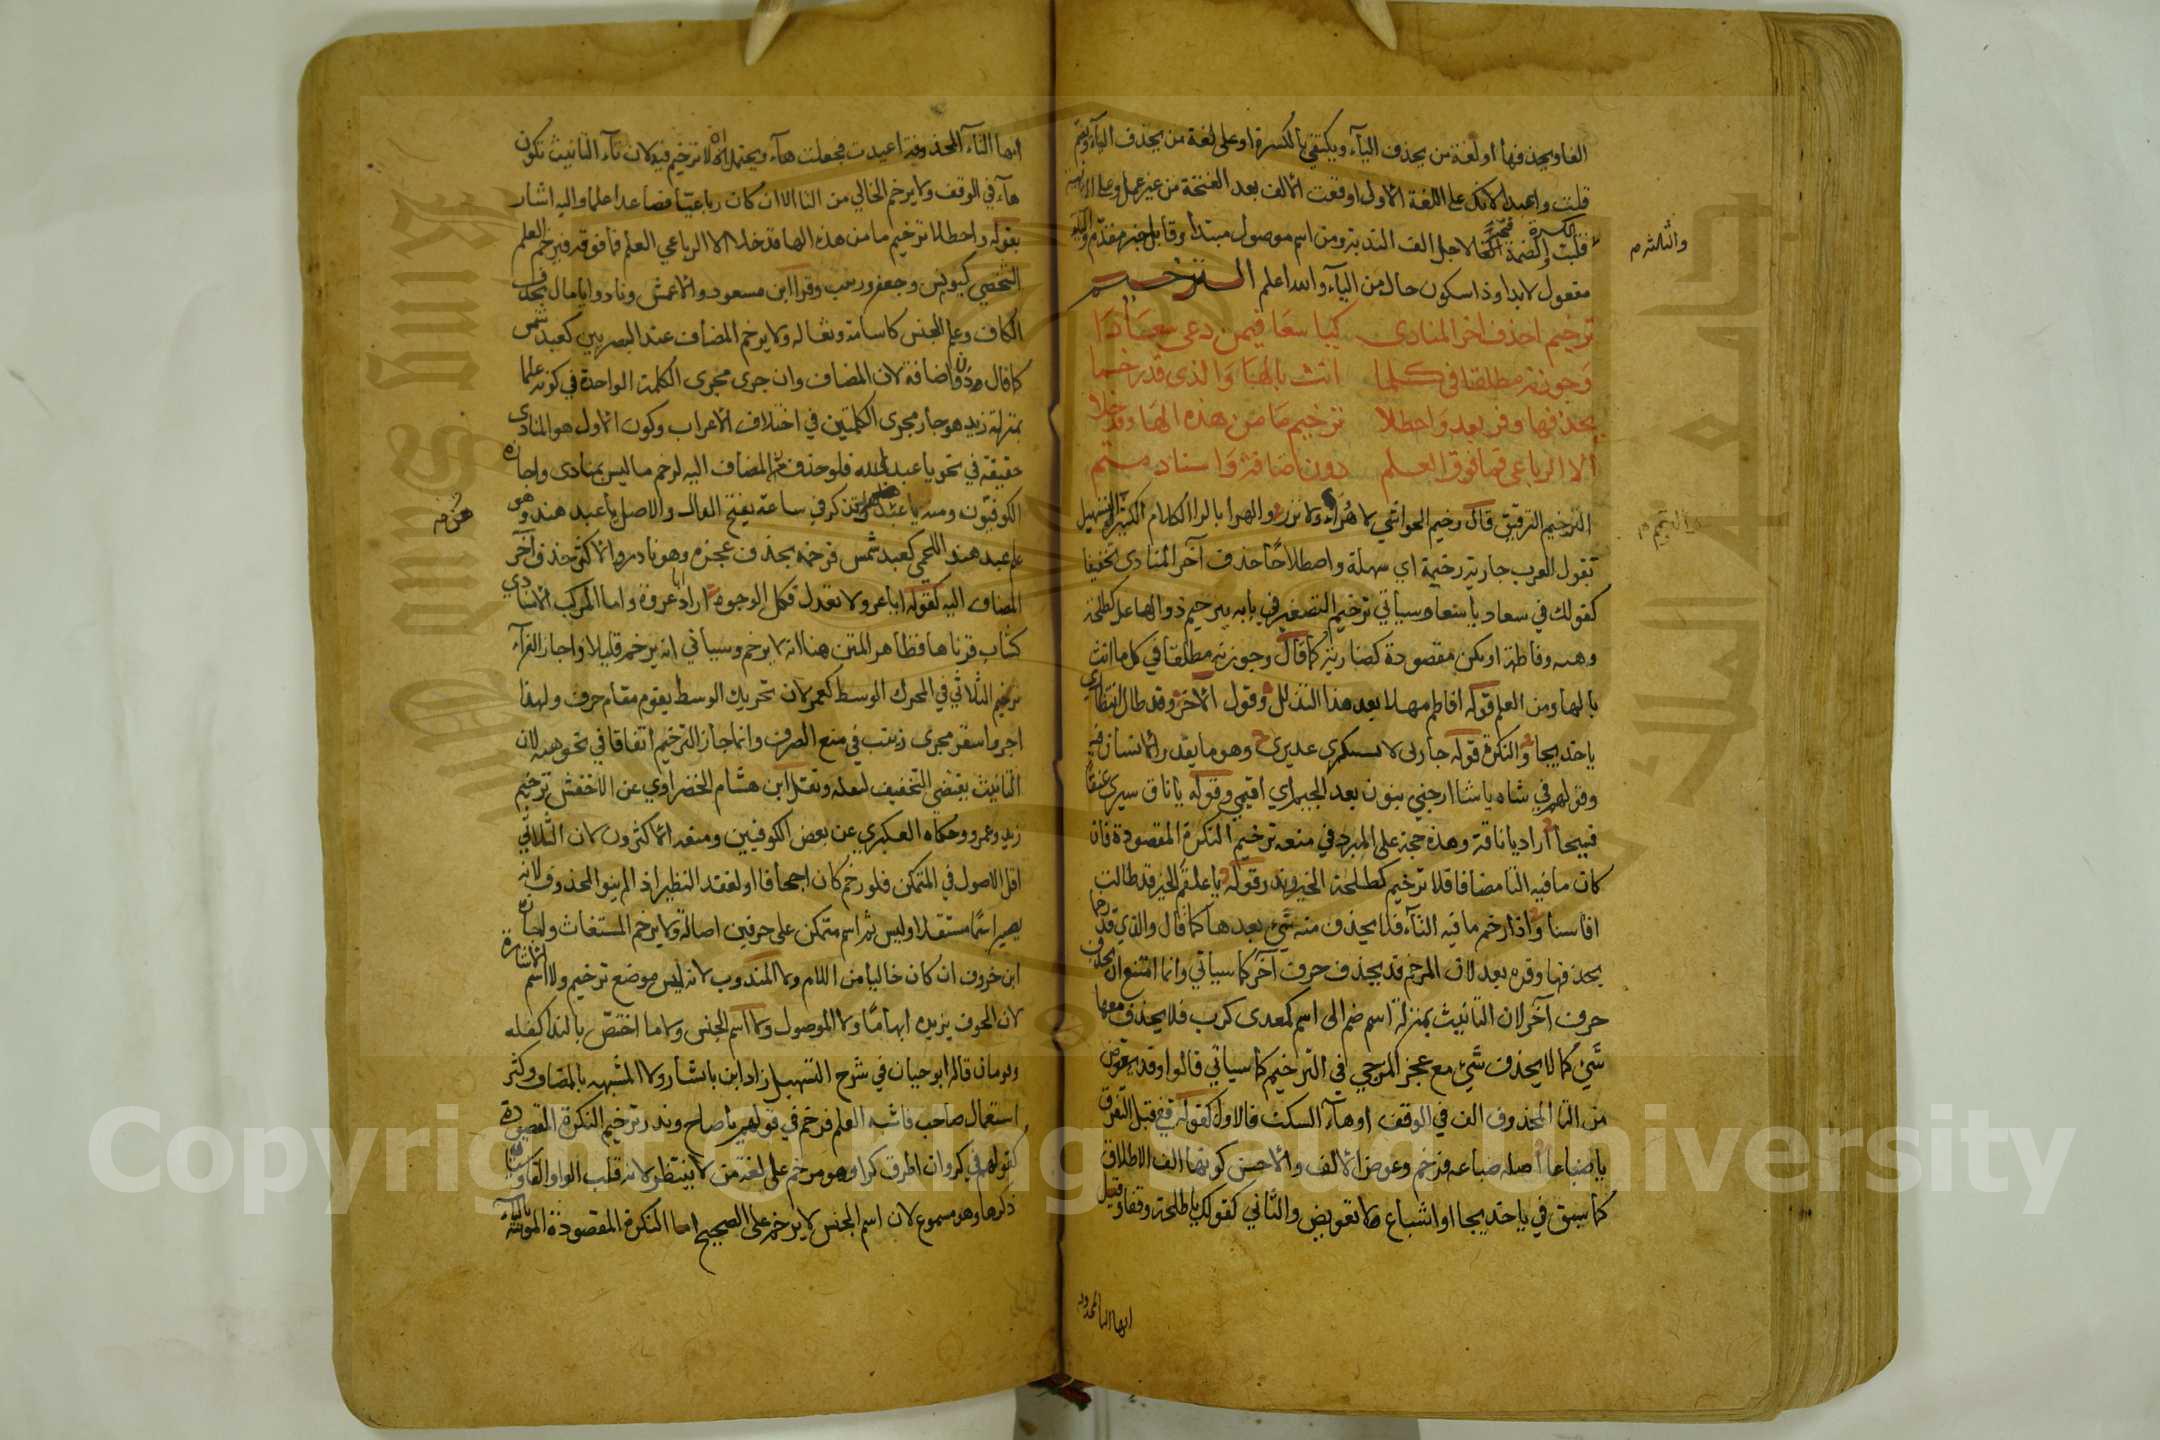 الفا ويحذفها او لغة من يحذف اليآء ويكتفي بالكسرة او على لغة من يحذف اليآء ويضم
قلت واعبد الانك على اللغة الاولى اوقعت الالف بعد الفتحة من غير عمل وعلى الثانية
قلبت الكسرة فتحة والضمة لاجل الف الندبة ومن اسم موصول مبتدا وقابل خبر مقدم واليا
مفعول لابدا وذا سكون حال من اليآء والله اعلم الترخيم
ترخيم احذف اخر المنادى كيا سعا فيمن دعى سعادا
وجوزنه مطلقا في كلما انث بالها والذى قد رخما
بحذفها وفره بعد واحظلا ترخيم ما من هذه الها قد خلا
الا الرباعى فما فوق العلم دون اضافة واسناد متم
الترخيم الترقيق قال رخيم الحواشي لا هرآء ولا نزر والهرا بالرا الكلام الكثير او التسهيل
تقول العرب جارية رخيمة اي سهلة واصطلاحا حذف آخر المنادى تخفيفا
كقولك في سعاد يا سعا وسياتي ترخيم التصغير في بابه يرخيم ذو الها علم كطلحة
وهبه وفاطمة او يكن مقصودة كضاربة كما قال وجوزنه مطلقا في كل ما انث
بالها ومن العلم قوله افاطم مهلا بعد هذا التدلل وقول الآخر وقد طال انتظاري
يا خديجا والنكرة قوله جاري لا تستنكري عذيري وهو ما يعذر الانسان فيه
وقولهم في شاه يا شا ارجني بنون بعد الجيم اي اقيمي وقوله يا ناق سيري عنقا
فسيحا اراد يا ناقة وهذه حجة على المبرد في منعه ترخيم النكرة المقصودة فان
كان ما فيه التا مضافا فلا ترخيم كطلحة الخير وندر قوله يا علقم الخير قد طالت
اقامتنا واذا رخم ما فيه التآء فلا يحذف منه شيئ بعدها كما قال والذي قد رخما
بحذفها وفره بعد لان المرخم قد يحذف حرف آخر كما سياتي وانما امتنع ان يحذف
حرف آخر لان التانيث بمنزلة اسم ضم الى اسم كمعدى كرب فلا يحذف معها
شيئ كما لا يحذف شيئ مع عجز المزجي في الترخيم كما سياتي قالوا وقد يعوض
من التا المحذوف الف في الوقف او هآء السكت فالاول كقوله قفي قبل التفرق
يا ضباعا اصله ضباعه فرخم وعوض الالف والاحسن كونها الف الاطلاق
كما سبق في يا خديجا او اشباع لا تعويض والثاني كقولك يا طلحة وقفا وقيل
انها التا المحذوفه
والثالثه م
انها التآء المحذوفة اعيدت فجعلت هآء ويحتمل انه لا ترخيم فيه لان تآء التانيث تكون
هآء في الوقف ولا يرخم الخالي من التا الا ان كان رباعيا فصاعدا علما واليه اشار
بقوله واحظلا ترخيم ما من هذه الها قد خلا الا الرباعي العلم فما فوقه فيرخم العلم
الشخصي كيونس وجعفر وزينب وقرا ابن مسعود والاعمش ونادوا يا مال بحذف
الكاف وعلم الجنس كاسامة وثعاله ولا يرخم المضاف عند البصريين كعبد شمس
كما قال دون اضافة لان المضاف وان جرى مجرى الكلمة الواحدة في كونه علما
بمنزلة زيد هو جار مجرى الكلمتين في اختلاف الاعراب وكون الاول هو المنادى
حقيقة في نحو يا عبد الله فلو حذف من المضاف اليه لرخم ما ليس بمنادى واجازه
الكوفيون ومنه يا عبد هل تذكرني ساعة بفتح الدال والاصل يا عبد هند وهو
علم عبد هند اللخمي كعبد شمس فرخمه بحذف عجزه وهو نادر والاكثر حذف آخر
المضاف اليه كقوله ابا عرو لا تبعد فكل الوجوه اراد ابا عروة واما المركب الاسنادي
كشاب قرناها فظاهر المتن هنا انه لا يرخم وسياتي انه يرخم قليلا واجاز الفرآء
ترخيم الثلاثي في المحرك الوسط كعمر لان تحريك الوسط يقوم مقام حرف ولهذا
اجروا سقر مجرى زينب في منع الصرف وانما جاز الترخيم اتفاقا في نحو هبه لان
التانيث يقتضي التخفيف لثقله ونقل ابن هشام الخضراوي عن الاخفش ترخيم
زيد وعمرو وحكاه العكبري عن بعض الكوفيين ومنعه الاكثرون لان الثلاثي
اقل الاصول في المتمكن فلو رخم كان اجحافا او لفقد النظير اذ لم ينو المحذوف لانه
يصير اسما مستقلا وليس ثم اسم متمكن على حرفين اصالة ولا يرخم المستغاث واجازه
ابن خروف ان كان خاليا من اللام ولا المندوب لانه ليس موضع ترخيم ولا اسم الاشارة
لان الحرف يزيده ابهاما ولا الموصول ولا اسم الجنس ولا ما اختص بالندا كفله
ونومان قاله ابو حيان في شرح التسهيل زاد ابن بابشاذ ولا المشبه بالمضاف وكثر
استعمال صاحب فاشبه العلم فرخم في قولهم يا صاح وندر ترخيم النكرة المقصودة
كقولهم في كروان اطرق كرا وهو مرخم على لغة من لا ينتظر لانه قلب الواو الفا وسياتي
ذكرها وهو مسموع لان اسم الجنس لا يرخم على الصحيح اما النكرة المقصودة المؤنثة بالتآء